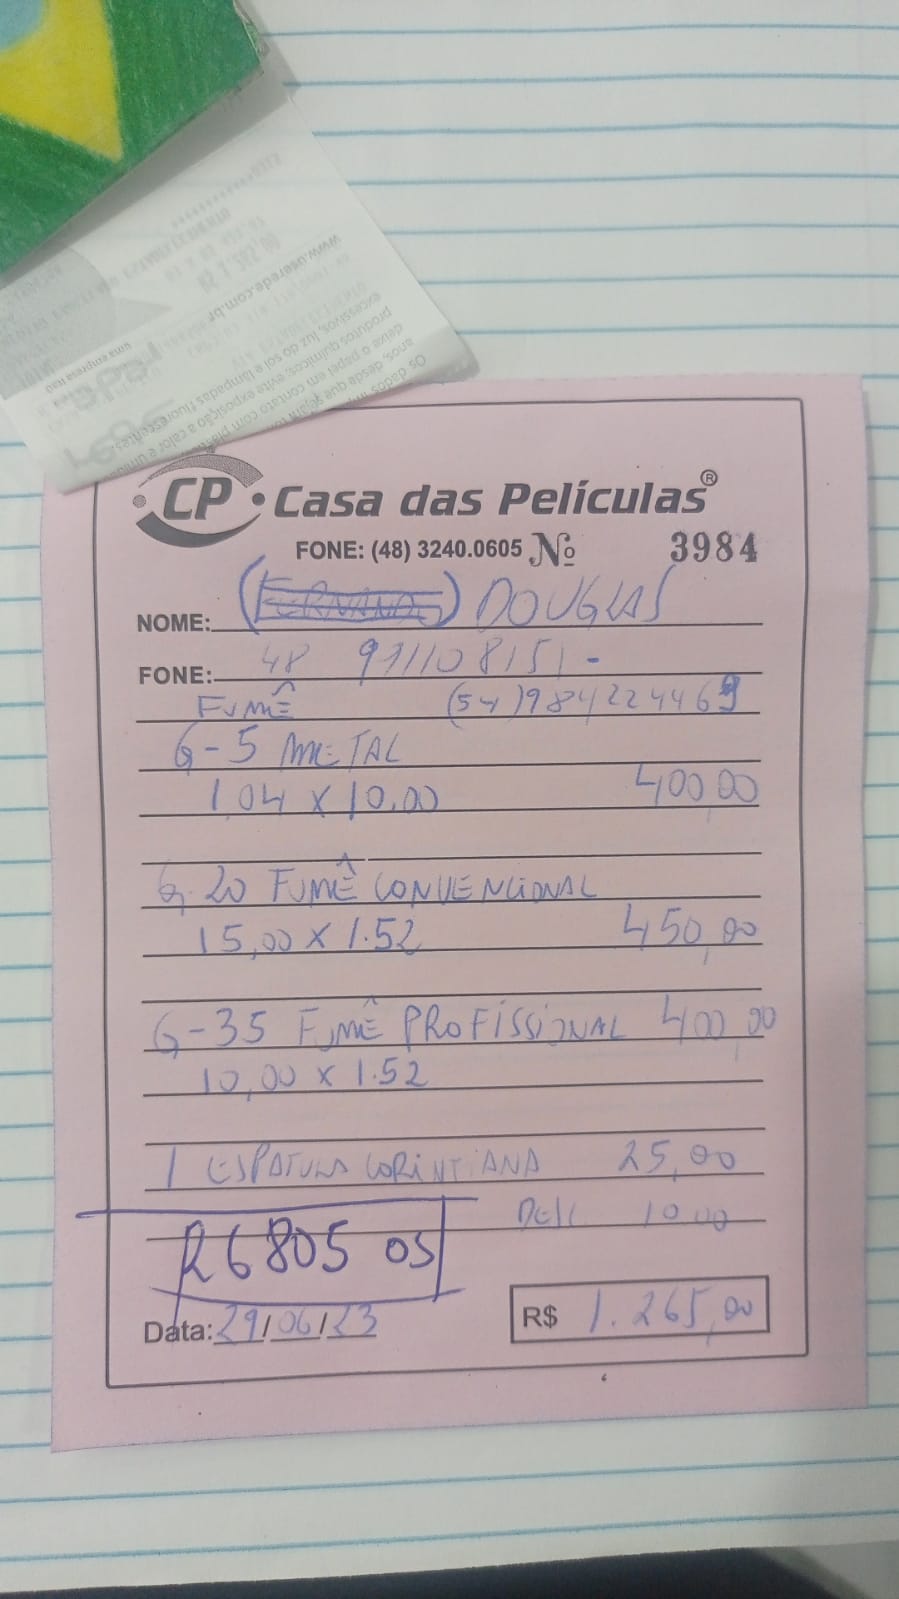 www.userede.com.br
uma empresa Itaú
rede
CP Casa das Películas®
FONE: (48) 3240.0605 Nº 3984
NOME: (FERNANDO) DOUGLAS
FONE: 48 991108151-
FUMÊ (54)984224469
G-5 METAL
1,04 X 10,00 400,00
G.20 FUMÊ CONVENCIONAL
15,00 X 1.52 450,00
G-35 FUMÊ PROFISSIONAL 400,00
10,00 X 1.52
1 ESPATULA CORINTIANA 25,00
DESC 10,00
R6805 OS
Data: 29/06/23 R$ 1.265,00